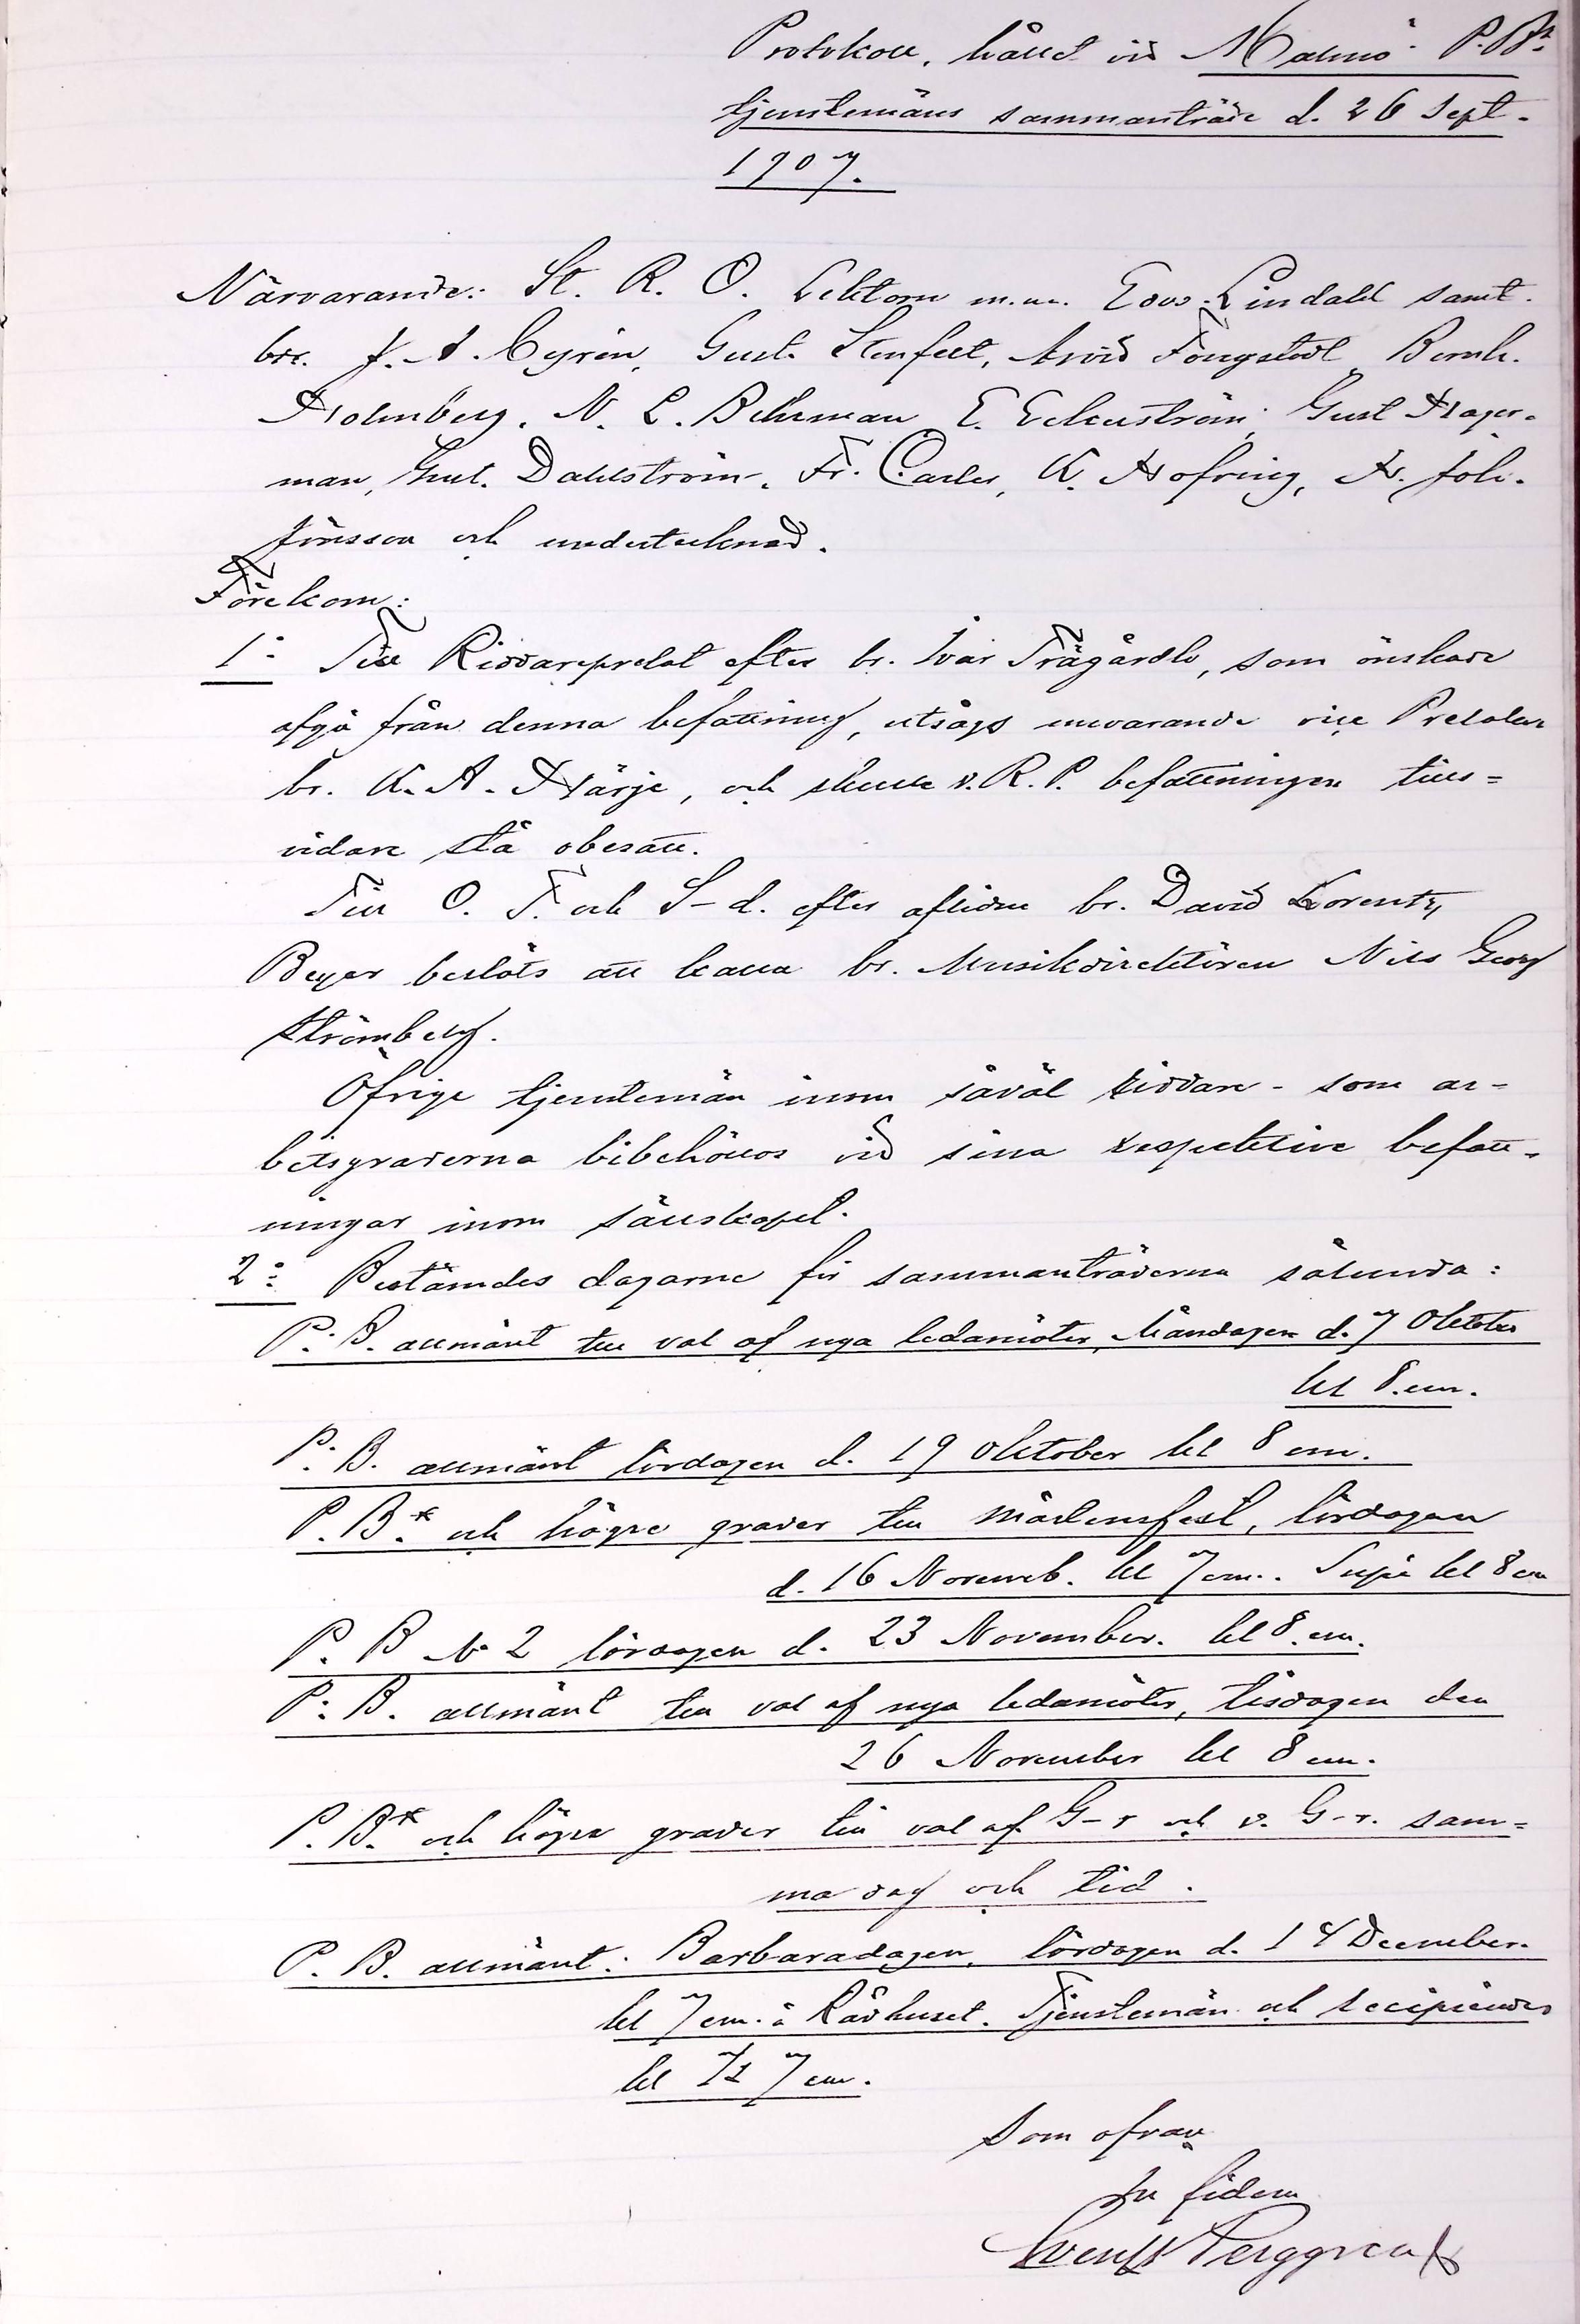 Protokoll, hållet vid Malmö P. Bs
tjenstemäns sammanträde d. 26 Sept.
1907.
Närvarande: St. R. O. Lektorn m.m. Edv. Lindahl samt
brr. J. A. Cyrén, Gust. Stenfelt, Arvid Bernh.
Holmberg, N. L. Behrman E. Eckerström, Gust Hager-
man, Gust. Dahlström, Fr. Carler, K. Hofring, N. Joh.
Jönsson och undertecknad.
Förekom:
1o Till Riddareprelat efter br. Ivar Trägårdh, som önskade
afgå från denna befattning, utsågs nuvarande vice Prelaten
br. K. A. Härje, och skulle v. R. P. befattningen tills=
vidare stå obesatt.
Till O. F. och S-d. efter aflidne br. David Lorentz
Beyer beslöts att kalla br. Musikdirektören Nils Georg
Strömberg.
Öfrige tjenstemän inom såväl riddare- som ar-
betsgraderna bibehöllos vid sina respektive befatt-
ningar inom sällskapet.
2o Bestämdes dagarne för sammanträderna sålunda:
P. B. allmänt till val af nya ledamöter, Måndagen d. 7 Oktober
kl 8. em.
P. B. allmänt lördagen d. 19 Oktober kl 8 em.
P. B.* och högre grader till Mårtensfest, lördagen
d. 16 Novemb. kl 7 em. Supé kl 8 em
P. B No 2 lördagen d. 23 November. kl 8. em.
P. B. allmänt till val af nya ledamöter, tisdagen den
26 November kl 8 em.
P. B.* och högre grader till val af G-r och v. G-r. sam=
ma dag och tid.
P. B. allmänt. Barbaradagen, lördagen d. 14 December.
kl 7 em. å Rådhuset. Tjenstemän och recipiender
kl 1/2 7 em.
Som ofvan
In fidem
Berggren